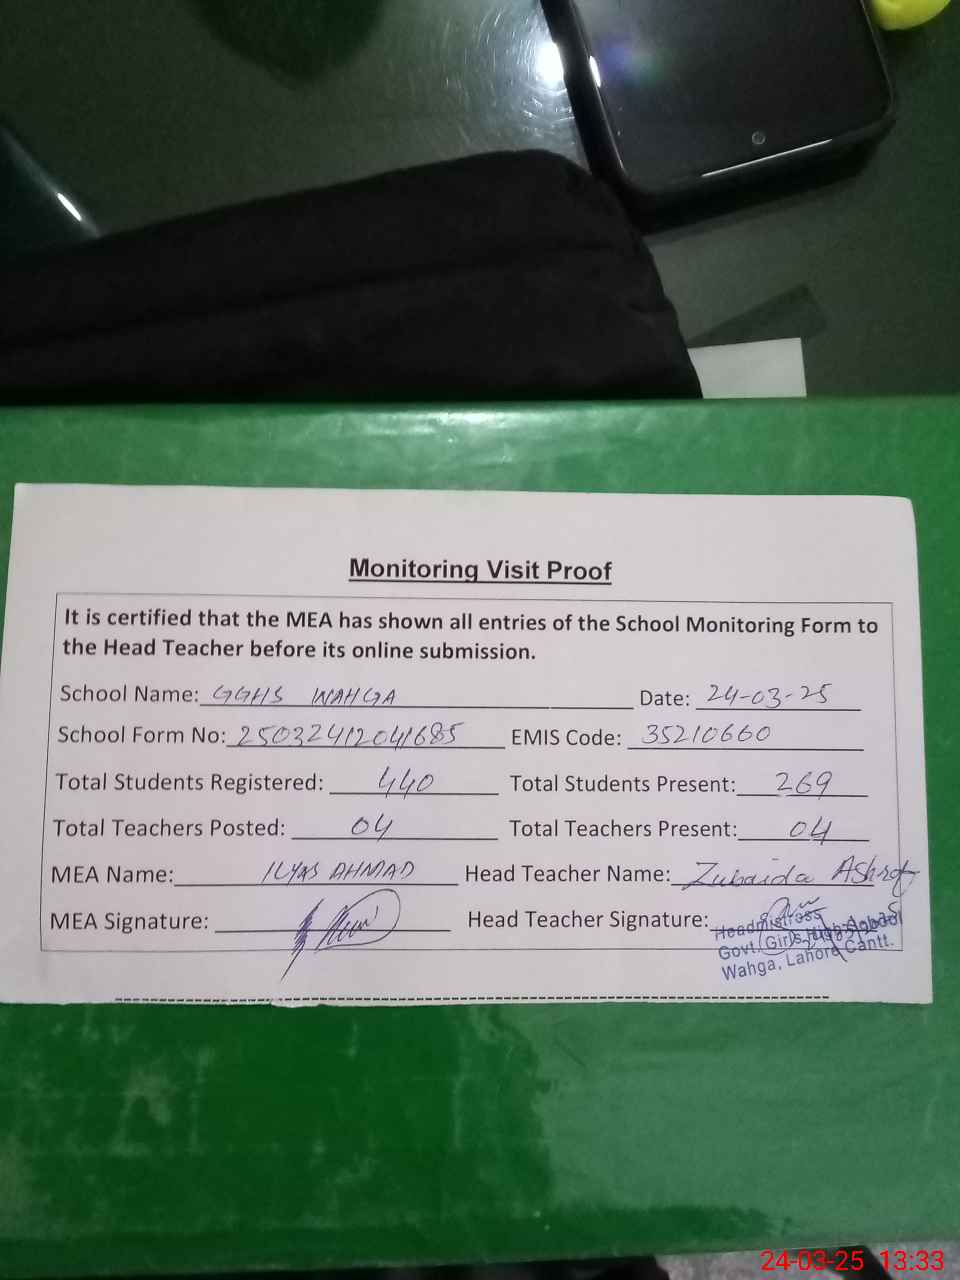 Monitoring Visit Proof
It is certified that the MEA has shown all entries of the School Monitoring Form to
the Head Teacher before its online submission.
School Name: GGHS WAHGA Date: 24-03-25
School Form No: 25032412041685 EMIS Code: 35210660
Total Students Registered: 440 Total Students Present: 269
Total Teachers Posted: 04 Total Teachers Present: 04
MEA Name: ILYAS AHMAD Head Teacher Name: Zubaida Ashraf
MEA Signature: Head Teacher Signature:
Headmistress
Govt. Girls High School
Wahga, Lahore Cantt.
24-03-25 13:33